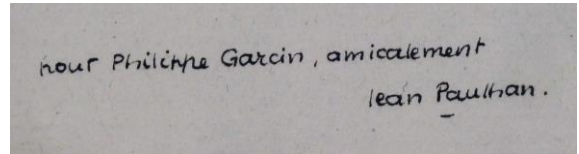 pour Philippe Garcin, amicalement
Jean Paulhan.